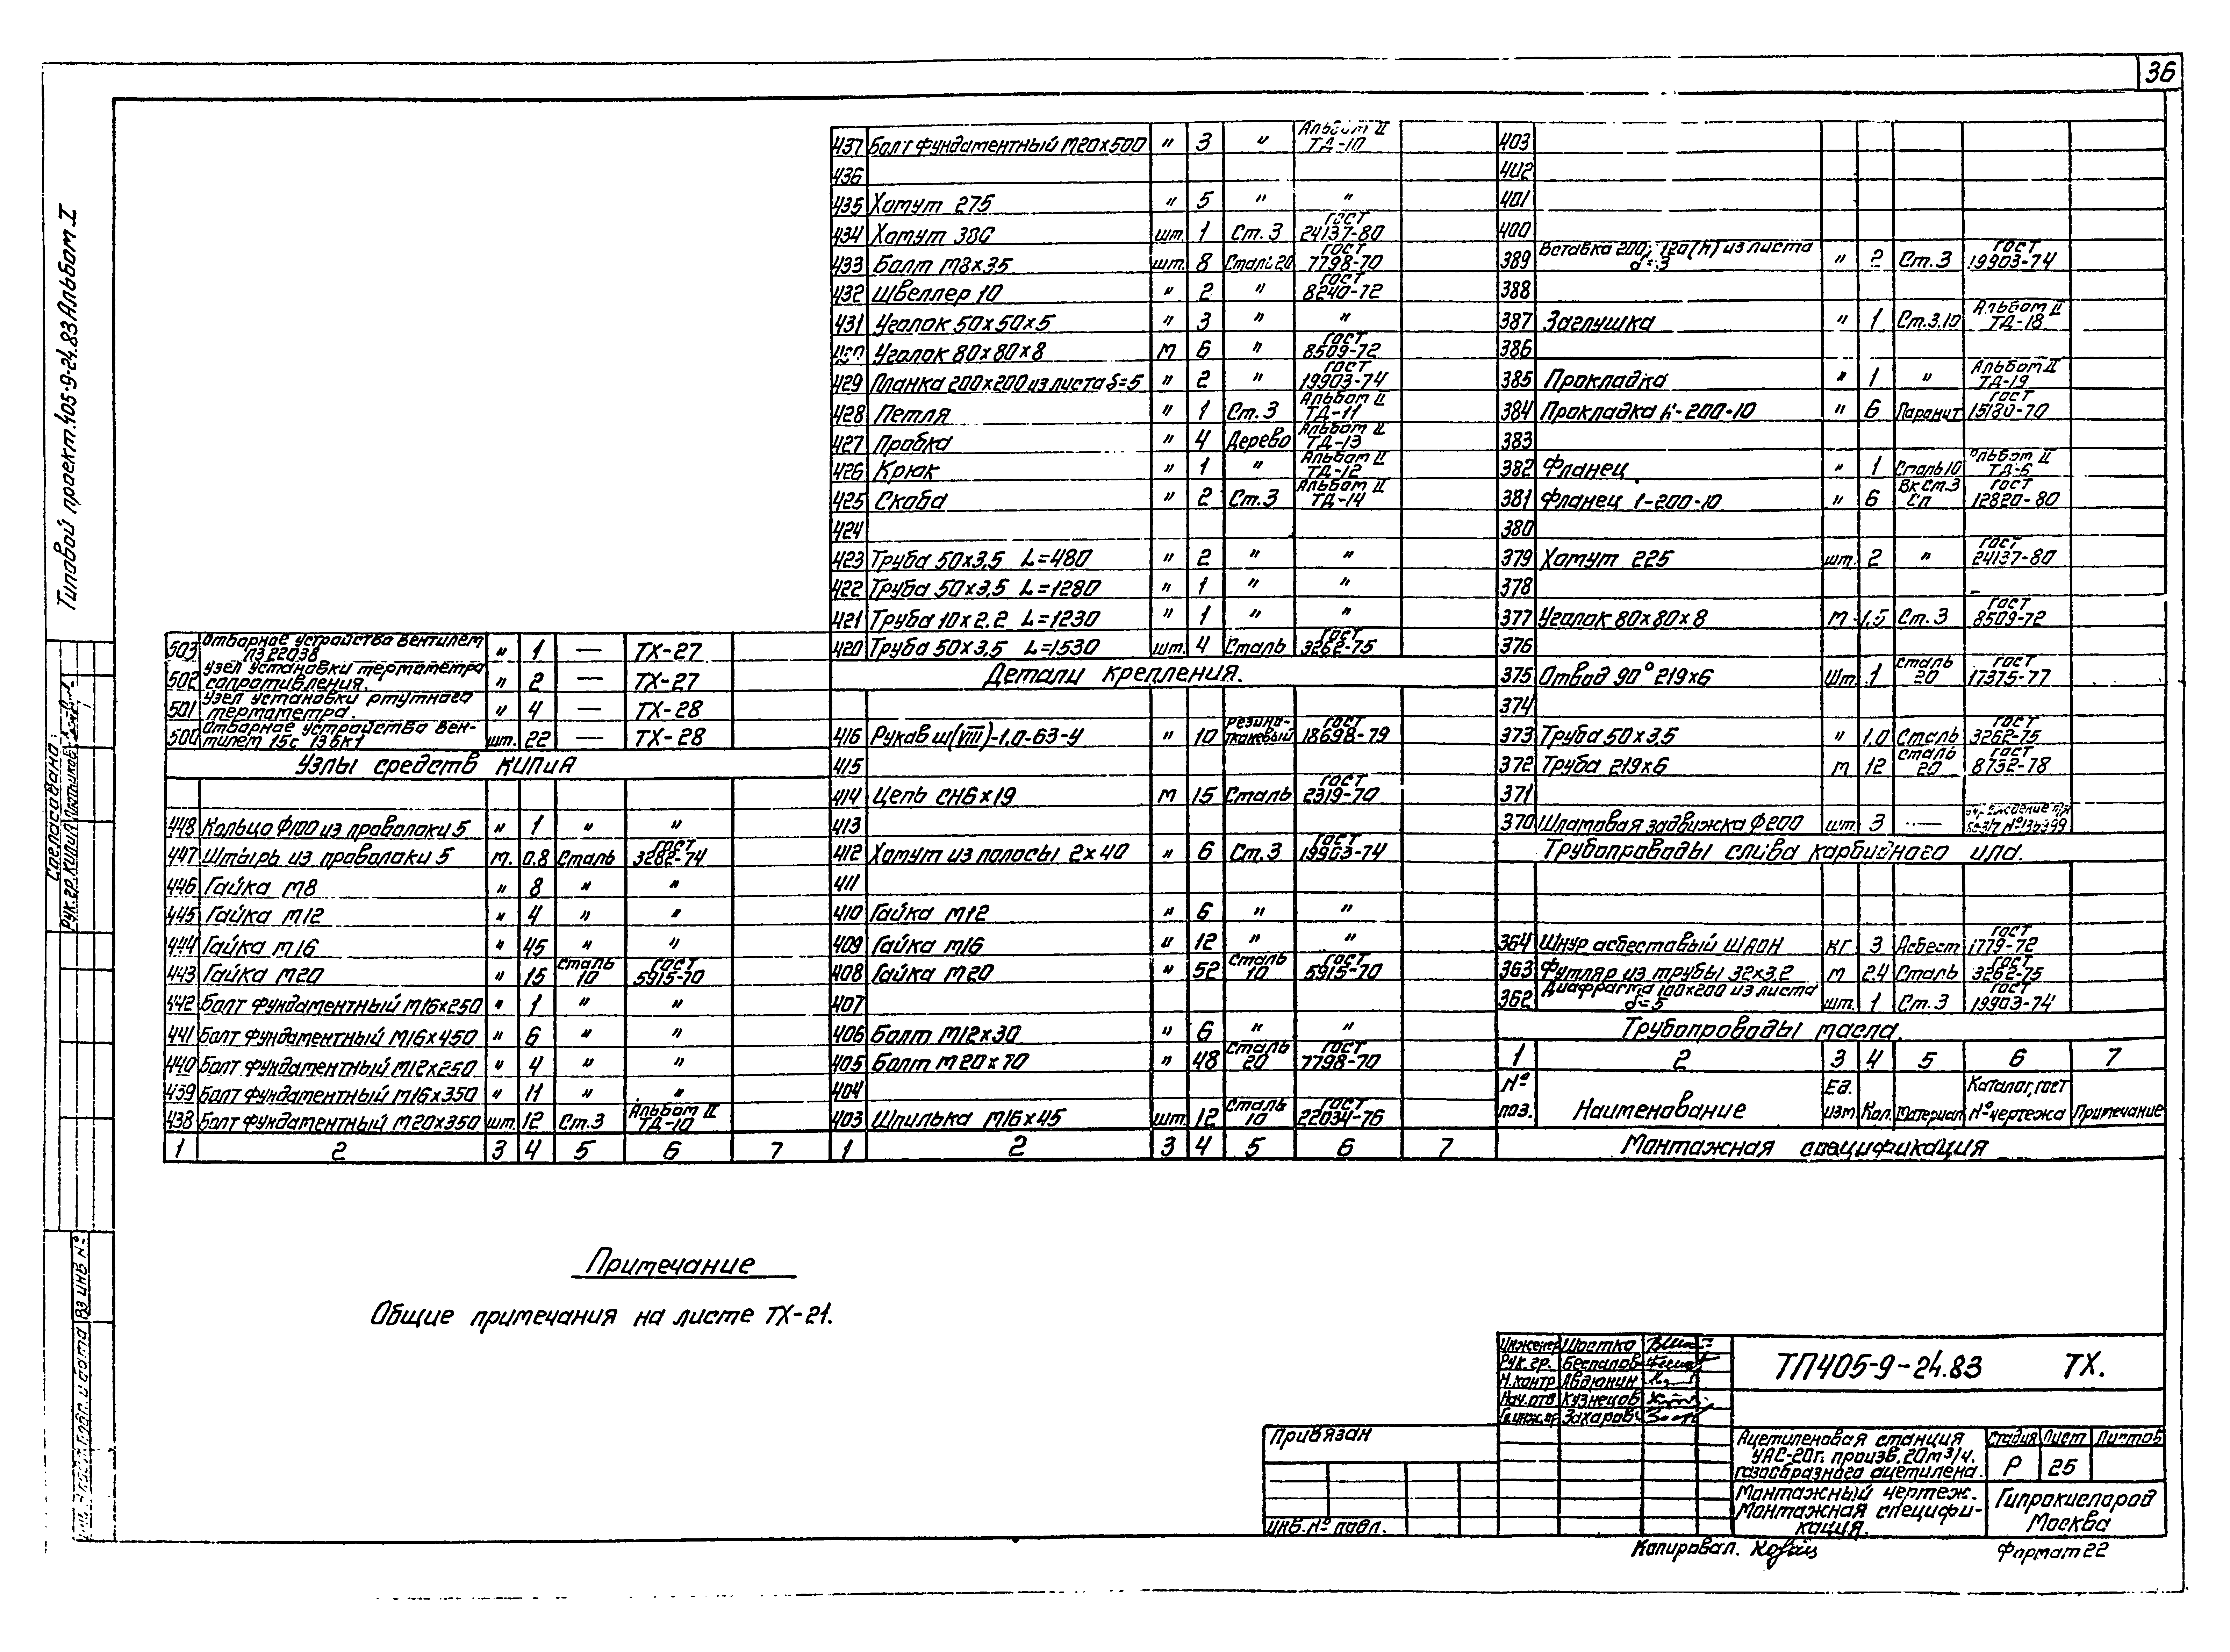 36
Типовой проект.405-9-24.83 Альбом I
Согласовано:
Рук.гр.КИПиА
Вз инв №
503 Отборное устройства вентилем " 1 — ТХ-27
502 Узел установки термометра сопротивления. " 2 — ТХ-27
501 Узел установки ртутного термометра. " 4 — ТХ-28
500 Отборное устройства вентилем 15с 13бк1 шт. 22 — ТХ-28
Узлы средств КИПиА
448 Кольцо Ф100 из проволоки 5 " 1 " "
447 Штырь из проволоки 5 м. 0,8 Сталь ГОСТ 3282-74
446 Гайка М8 " 8 " "
445 Гайка М12 " 4 " "
444 Гайка М16 " 45 " "
443 Гайка М20 " 15 Сталь 10 ГОСТ 5915-70
442 Болт фундаментный М16х250 " 1 " "
441 Болт фундаментный М16х450 " 6 " "
440 Болт фундаментный М12х250 " 4 " "
439 Болт фундаментный М16х350 " 11 " "
438 Болт фундаментный М20х350 шт. 12 Ст.3 Альбом II ТД-10
1 2 3 4 5 6 7
437 Болт фундаментный М20х500 " 3 " Альбом II ТД-10
436
435 Хомут 275 " 5 " "
434 Хомут 380 шт. 1 Ст.3 ГОСТ 24137-80
433 Болт М8х35 шт. 8 Сталь 20 ГОСТ 7798-70
432 Швеллер 10 " 2 " ГОСТ 8240-72
431 Уголок 50х50х5 " 3 " "
430 Уголок 80х80х8 М 6 " ГОСТ 8509-72
429 Планка 200х200 из листа δ=5 " 2 " ГОСТ 19903-74
428 Петля " 1 Ст.3 Альбом II ТД-11
427 Пробка " 4 Дерево Альбом II ТД-13
426 Крюк " 1 " Альбом II ТД-12
425 Скоба " 2 Ст.3 Альбом II ТД-14
424
423 Труба 50х3,5 L=480 " 2 " "
422 Труба 50х3,5 L=1280 " 1 " "
421 Труба 10х2.2 L=1230 " 1 " "
420 Труба 50х3,5 L=1530 шт. 4 Сталь ГОСТ 3262-75
Детали крепления.
416 Рукав Ш(VIII)-1,0-63-У " 10 Резино-тканевый ГОСТ 18698-79
415
414 Цепь СН6х19 М 15 Сталь ГОСТ 2319-70
413
412 Хомут из полосы 2х40 " 6 Ст.3 ГОСТ 19903-74
411
410 Гайка М12 " 6 " "
409 Гайка М16 " 12 " "
408 Гайка М20 " 52 Сталь 10 ГОСТ 5915-70
407
406 Болт М12х30 " 6 " "
405 Болт М20х70 " 48 Сталь 20 ГОСТ 7798-70
404
403 Шпилька М16х45 шт. 12 Сталь 10 ГОСТ 22034-76
1 2 3 4 5 6 7
403
402
401
400
389 Вставка 200; 120(h) из листа δ=3 " 2 Ст.3 ГОСТ 19903-74
388
387 Заглушка " 1 Ст.3,10 Альбом II ТД-18
386
385 Прокладка " 1 " Альбом II ТД-19
384 Прокладка А-200-10 " 6 Паронит ГОСТ 15180-70
383
382 Фланец " 1 Сталь 10 Альбом II ТД-6
381 Фланец 1-200-10 " 6 Вк Ст.3 Сп ГОСТ 12820-80
380
379 Хомут 225 шт. 2 " ГОСТ 24137-80
378
377 Уголок 80х80х8 М 1,5 Ст.3 ГОСТ 8509-72
376
375 Отвод 90° 219х6 Шт. 1 Сталь 20 ГОСТ 17375-77
374
373 Труба 50х3,5 " 1,0 Сталь ГОСТ 3262-75
372 Труба 219х6 М 12 Сталь 20 ГОСТ 8732-78
371
370 Шламовая задвижка Ф200 шт. 3 —
Трубопроводы слива карбидного ила.
364 Шнур асбестовый ШАОН КГ 3 Асбест ГОСТ 1779-72
363 Футляр из трубы 32х3,2 М 2.4 Сталь ГОСТ 3262-75
362 Диафрагма 100х200 из листа δ=5 шт. 1 Ст.3 ГОСТ 19903-74
Трубопроводы масла.
1 2 3 4 5 6 7
№ поз. Наименование Ед. изм. Кол. Материал Каталог, гост № чертежа Примечание
Монтажная спецификация
Примечание
Общие примечания на листе ТХ-21.
Инженер Шостко
Рук.гр. Беспалов
Н.контр Авдюнин
Нач.отд Кузнецов
Гл.инж.пр Захаров
ТП405-9-24.83 ТХ.
Привязан
Инв.№ подл.
Ацетиленовая станция
УАС-20г. произв.20м³/ч.
газообразного ацетилена.
Стадия Лист Листов
Р 25
Монтажный чертеж.
Монтажная специфи-
кация.
Гипрокислород
Москва
Копировал.
Формат 22